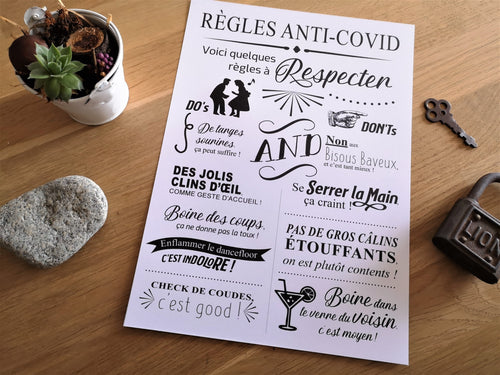 RÈGLES ANTI-COVID
Voici quelques
règles à Respecter
DO's
AND
DON'Ts
De langes
sourires,
ça peut suffire !
Non aux
Bisous Baveux,
et c'est tant mieux !
DES JOLIS
CLINS D'ŒIL,
COMME GESTE D'ACCUEIL !
Se Serrer la Main,
ça craint !
Boire des coups,
ça ne donne pas la toux !
PAS DE GROS CÂLINS
ÉTOUFFANTS,
on est plutôt contents !
Enflammer le dancefloor
C'EST INDOLORE !
CHECK DE COUDES,
c'est good !
Boire dans
le verre du voisin,
c'est moyen !